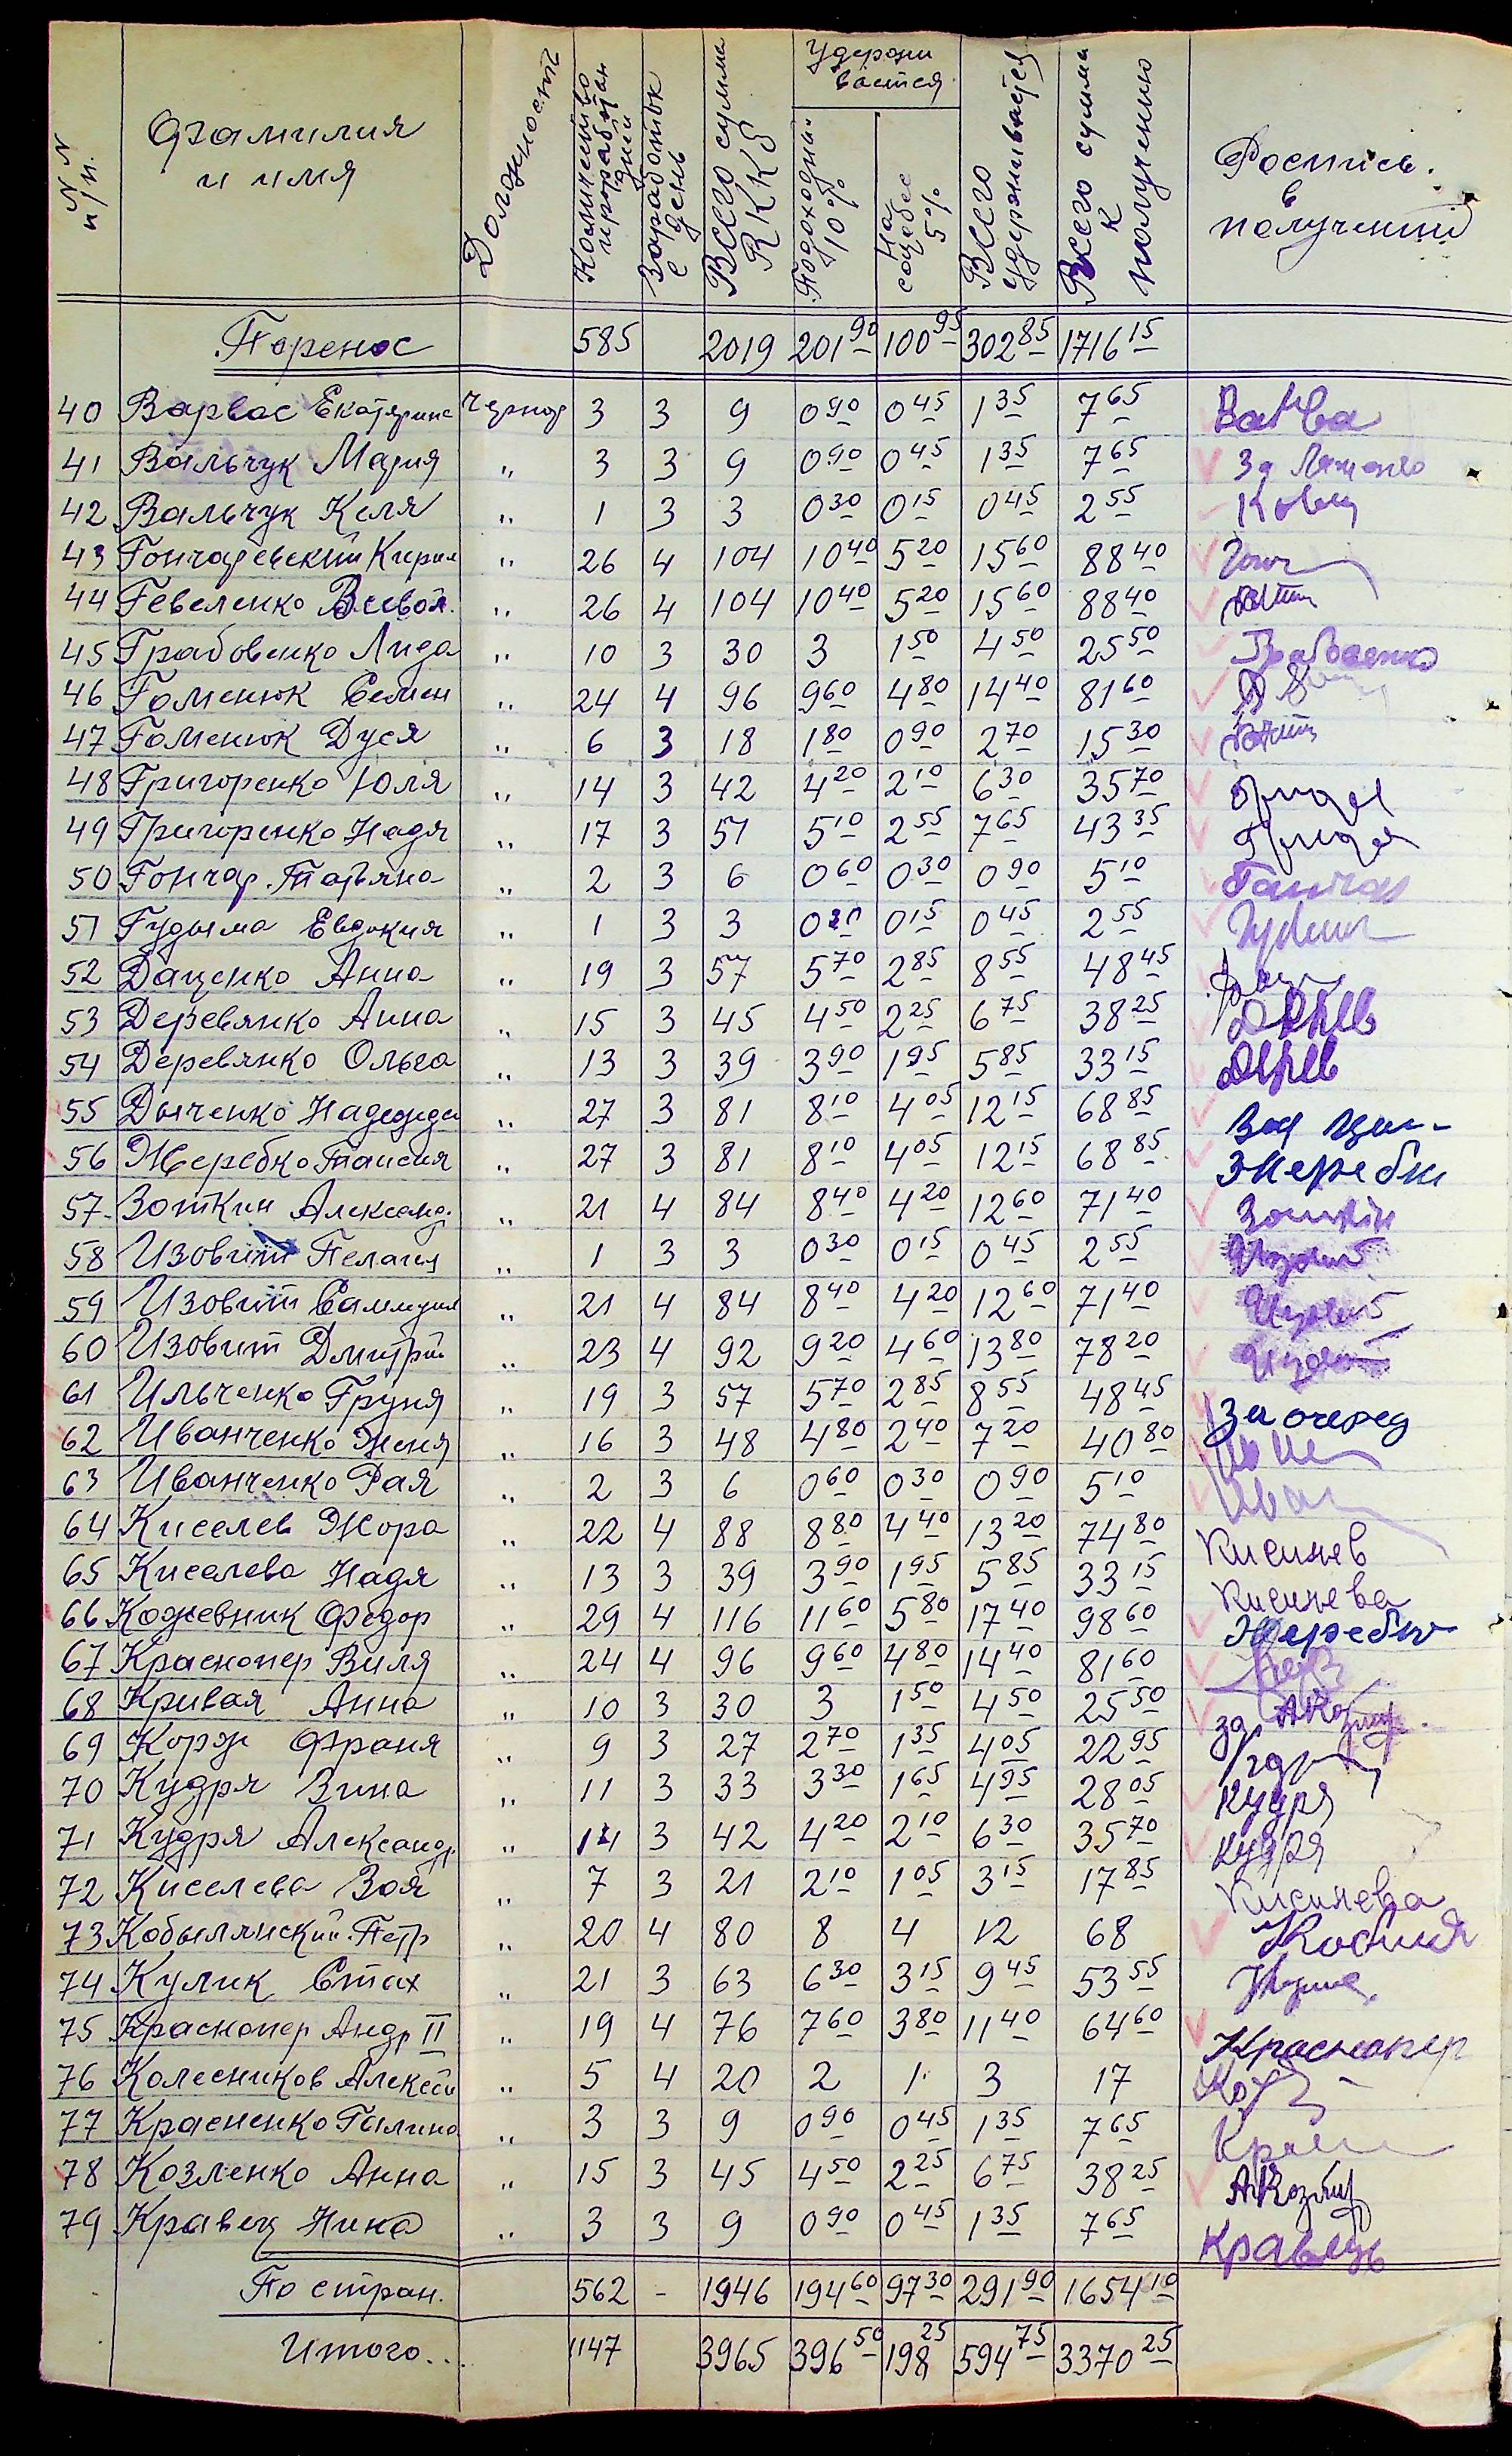 N N п/п. Фамилия и имя Должность Количество проработан дней Заработок в день Всего сумма RKKS Удержи вается Подоходный 10% На соцобес 5% Всего удерживается Всего сумма к получению Роспись в получении
Перенос 585 2019 201 90 100 95 302 85 1716 15
40 Варвас Екатерина Чернор 3 3 9 0 90 0 45 1 35 7 65
41 Вальчук Мария " 3 3 9 0 90 0 45 1 35 7 65 За
42 Вальчук Келя " 1 3 3 0 30 0 15 0 45 2 55
43 Гончаревский Кирил " 26 4 104 10 40 5 20 15 60 88 40 Гонч
44 Гевеленко Всевол. " 26 4 104 10 40 5 20 15 60 88 40
45 Грабовенко Лида " 10 3 30 3 1 50 4 50 25 50 Грабовенко
46 Гоменюк Семен " 24 4 96 9 60 4 80 14 40 81 60
47 Гоменюк Дуся " 6 3 18 1 80 0 90 2 70 15 30
48 Григоренко Юля " 14 3 42 4 20 2 10 6 30 35 70
49 Григоренко Надя " 17 3 51 5 10 2 55 7 65 43 35
50 Гончар. Татьяна " 2 3 6 0 60 0 30 0 90 5 10 Гончар
51 Гудыма Евдокия " 1 3 3 0 30 0 15 0 45 2 55
52 Даценко Анна " 19 3 57 5 70 2 85 8 55 48 45
53 Деревянко Анна " 15 3 45 4 50 2 25 6 75 38 25
54 Деревянко Ольга " 13 3 39 3 90 1 95 5 85 33 15 Дерев
55 Дьяченко Надежда " 27 3 81 8 10 4 05 12 15 68 85
56 Жеребко Таисия " 27 3 81 8 10 4 05 12 15 68 85 Жеребко
57. Зоткин Александ. " 21 4 84 8 40 4 20 12 60 71 40 Зоткин
58 Изовит Пелагия " 1 3 3 0 30 0 15 0 45 2 55 Изовит
59 Изовит " 21 4 84 8 40 4 20 12 60 71 40 Изовит
60 Изовит Дмитрий " 23 4 92 9 20 4 60 13 80 78 20 Изовит
61 Ильченко Груня " 19 3 57 5 70 2 85 8 55 48 45 За очеред
62 Иванченко Женя " 16 3 48 4 80 2 40 7 20 40 80
63 Иванченко Рая " 2 3 6 0 60 0 30 0 90 5 10 Иван
64 Киселев Жора " 22 4 88 8 80 4 40 13 20 74 80 Киселев
65 Киселева Надя " 13 3 39 3 90 1 95 5 85 33 15 Киселева
66 Кожевник Федор " 29 4 116 11 60 5 80 17 40 98 60 Жеребко
67 Красnoпер Виля " 24 4 96 9 60 4 80 14 40 81 60
68 Кривая Анна " 10 3 30 3 1 50 4 50 25 50 за АКозлу
69 Корж Франя " 9 3 27 2 70 1 35 4 05 22 95
70 Кудря Зина " 11 3 33 3 30 1 65 4 95 28 05 Кудря
71 Кудря Александр. " 14 3 42 4 20 2 10 6 30 35 70 Кудря
72 Киселева Зоя " 7 3 21 2 10 1 05 3 15 17 85 Киселева
73 Кобылянский Петр " 20 4 80 8 4 12 68
74 Кулик Стах " 21 3 63 6 30 3 15 9 45 53 55
75 Краснопер Андр II " 19 4 76 7 60 3 80 11 40 64 60 Краснопер
76 Колесников Алексей " 5 4 20 2 1 3 17
77 Красненко Галина " 3 3 9 0 90 0 45 1 35 7 65
78 Козленко Анна " 15 3 45 4 50 2 25 6 75 38 25
79 Кравец Нина " 3 3 9 0 90 0 45 1 35 7 65 Кравець
По стран. 562 - 1946 194 60 97 30 291 90 1654 10
Итого... 1147 3965 396 50 198 25 594 75 3370 25